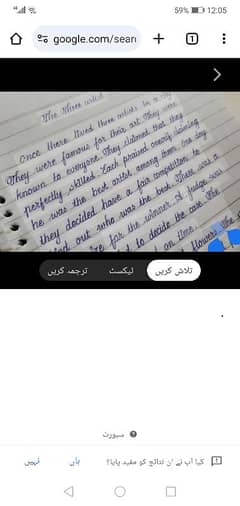 59% 12:05
google.com/sear
1
The three artist
Once there lived three artists in a city
They were famous for their art. They were
known to everyone. They claimed that they
perfectly skilled. Each praised oneself claiming
he was the best artist among them. One day
they decided have a fair competition to
out who was the best. There was a
for the winner. A judge was
to decide the case. The
on time.
flowers. The
تلاش کریں
ٹیکسٹ
ترجمہ کریں
سپورٹ
کیا آپ نے ان نتائج کو مفید پایا؟
ہاں
نہیں